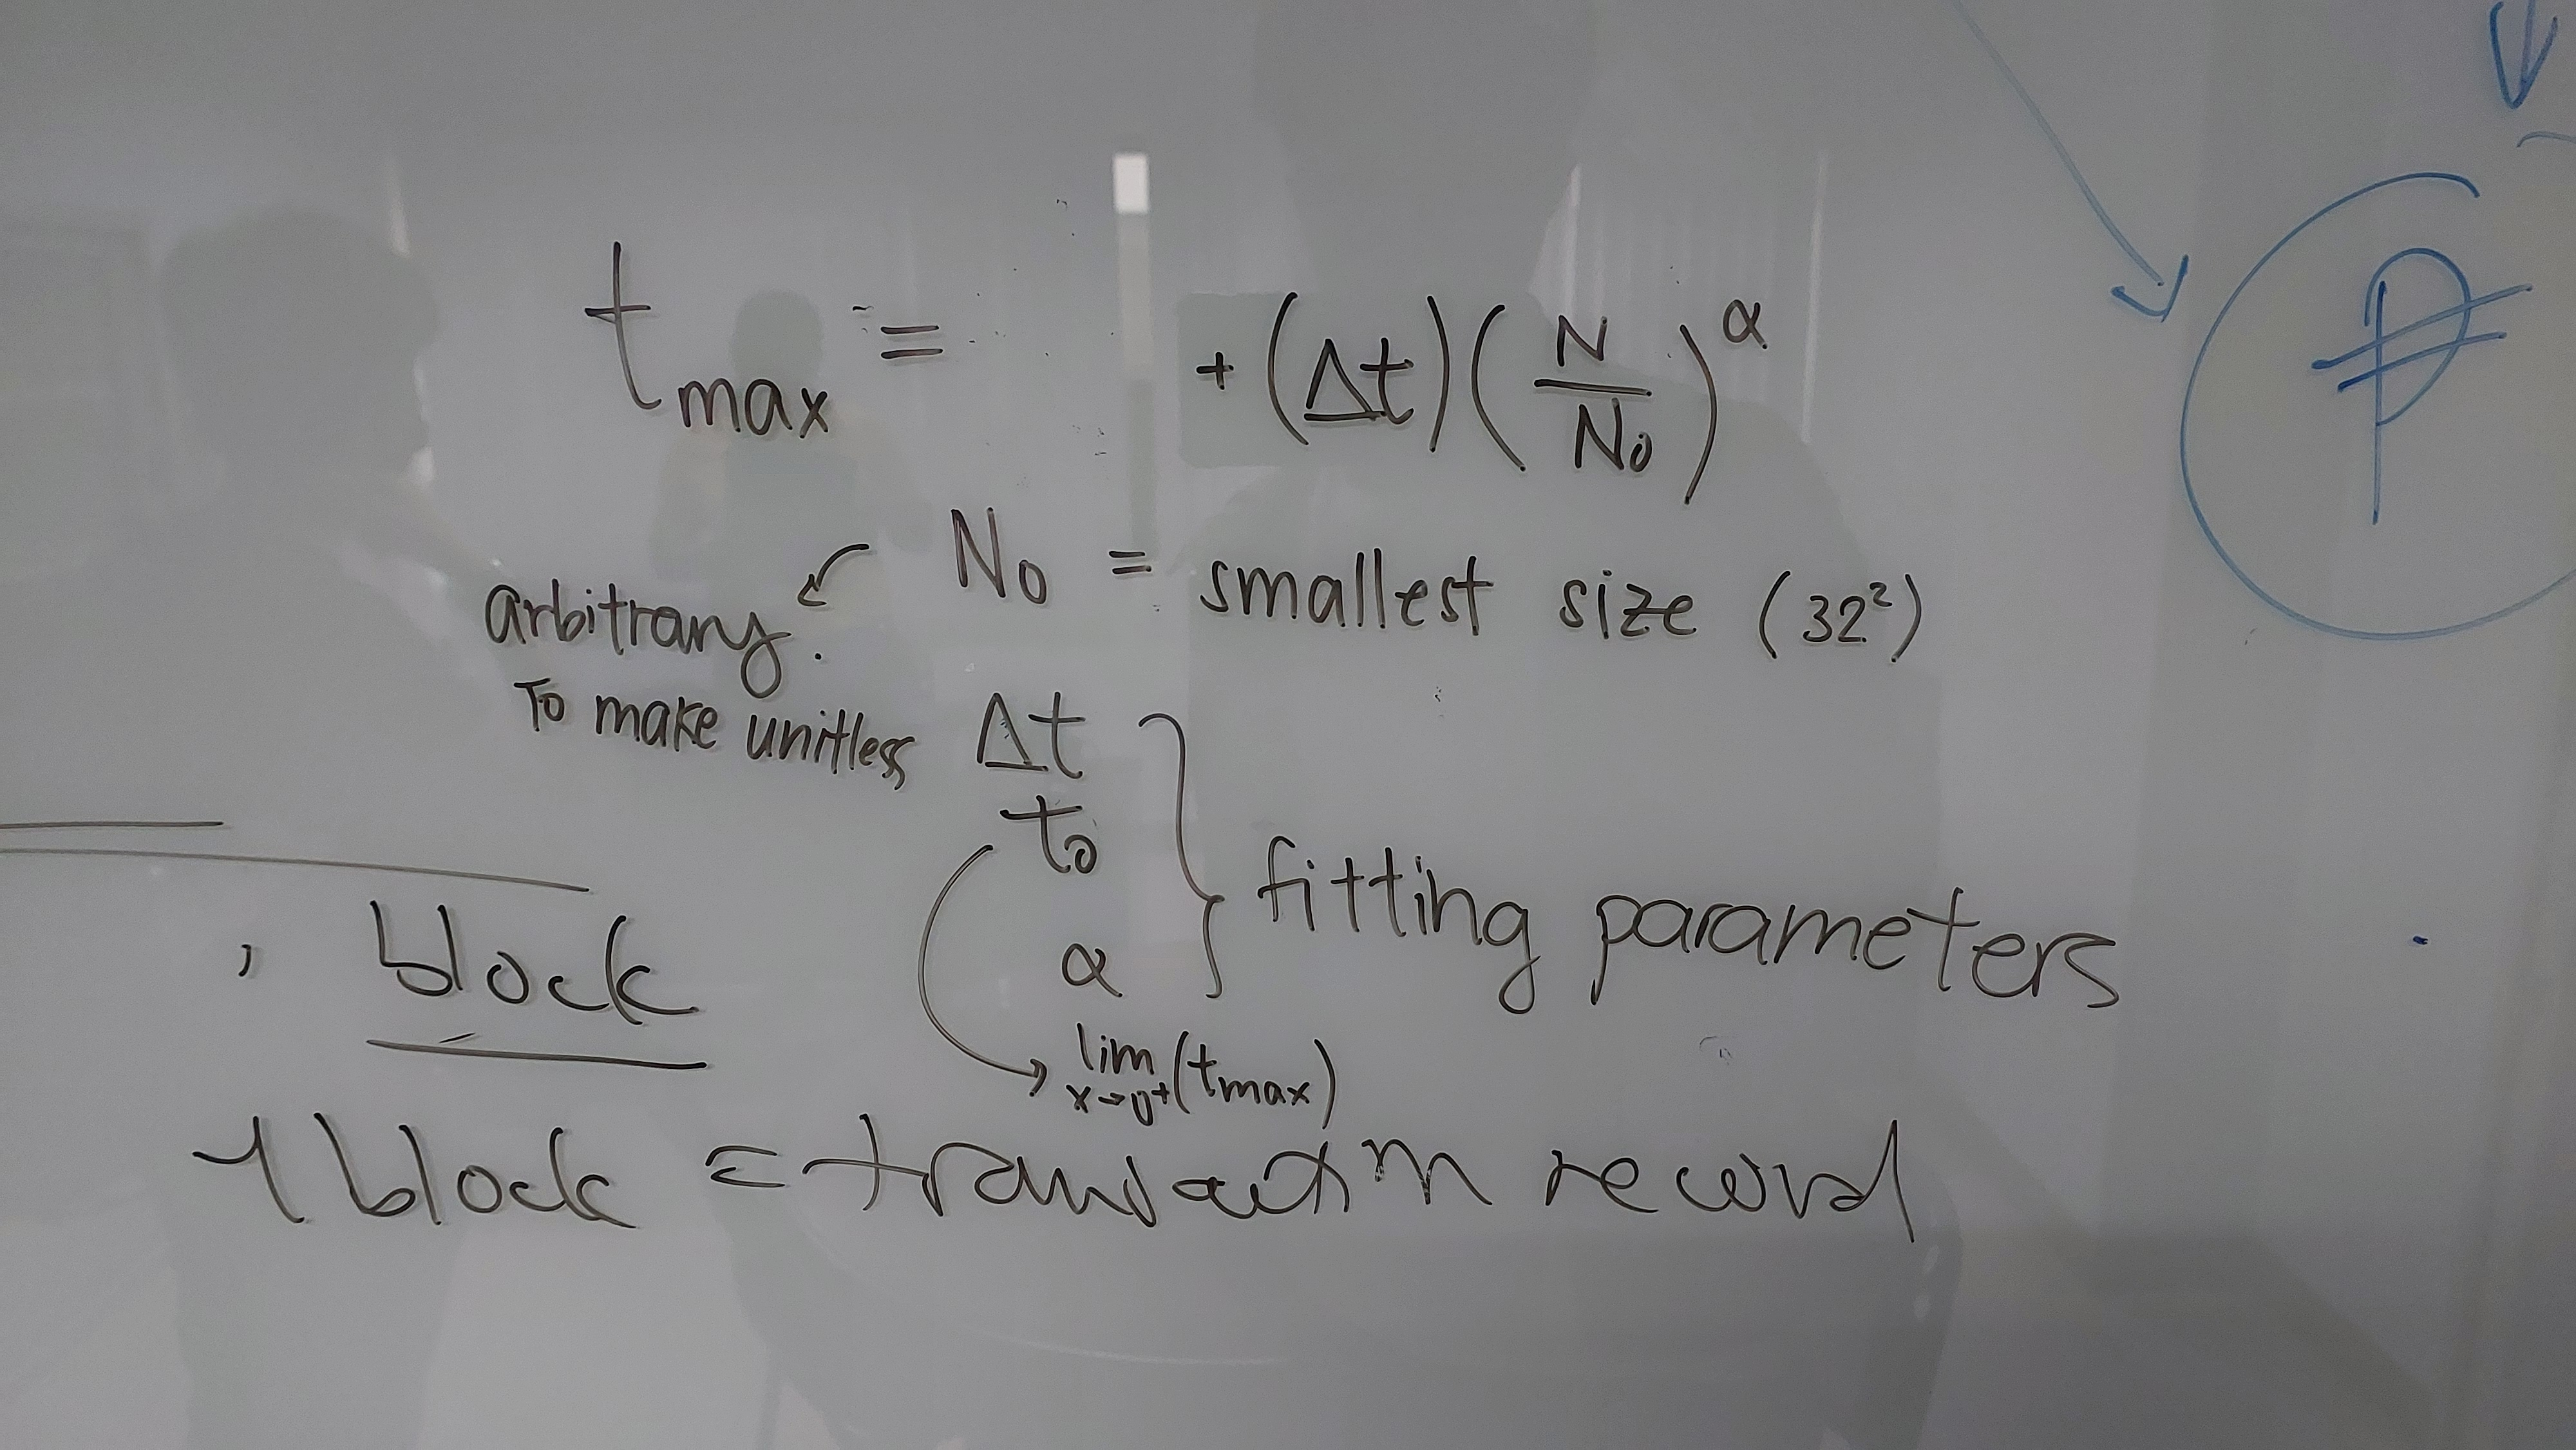 t_max = + (Δt)(N/N₀)^α
N₀ = smallest size (32²)
arbitrary.
To make unitless
Δt
t₀
α
fitting parameters
lim x→0⁺ (t_max)
, block
1 block = transaction record
₱